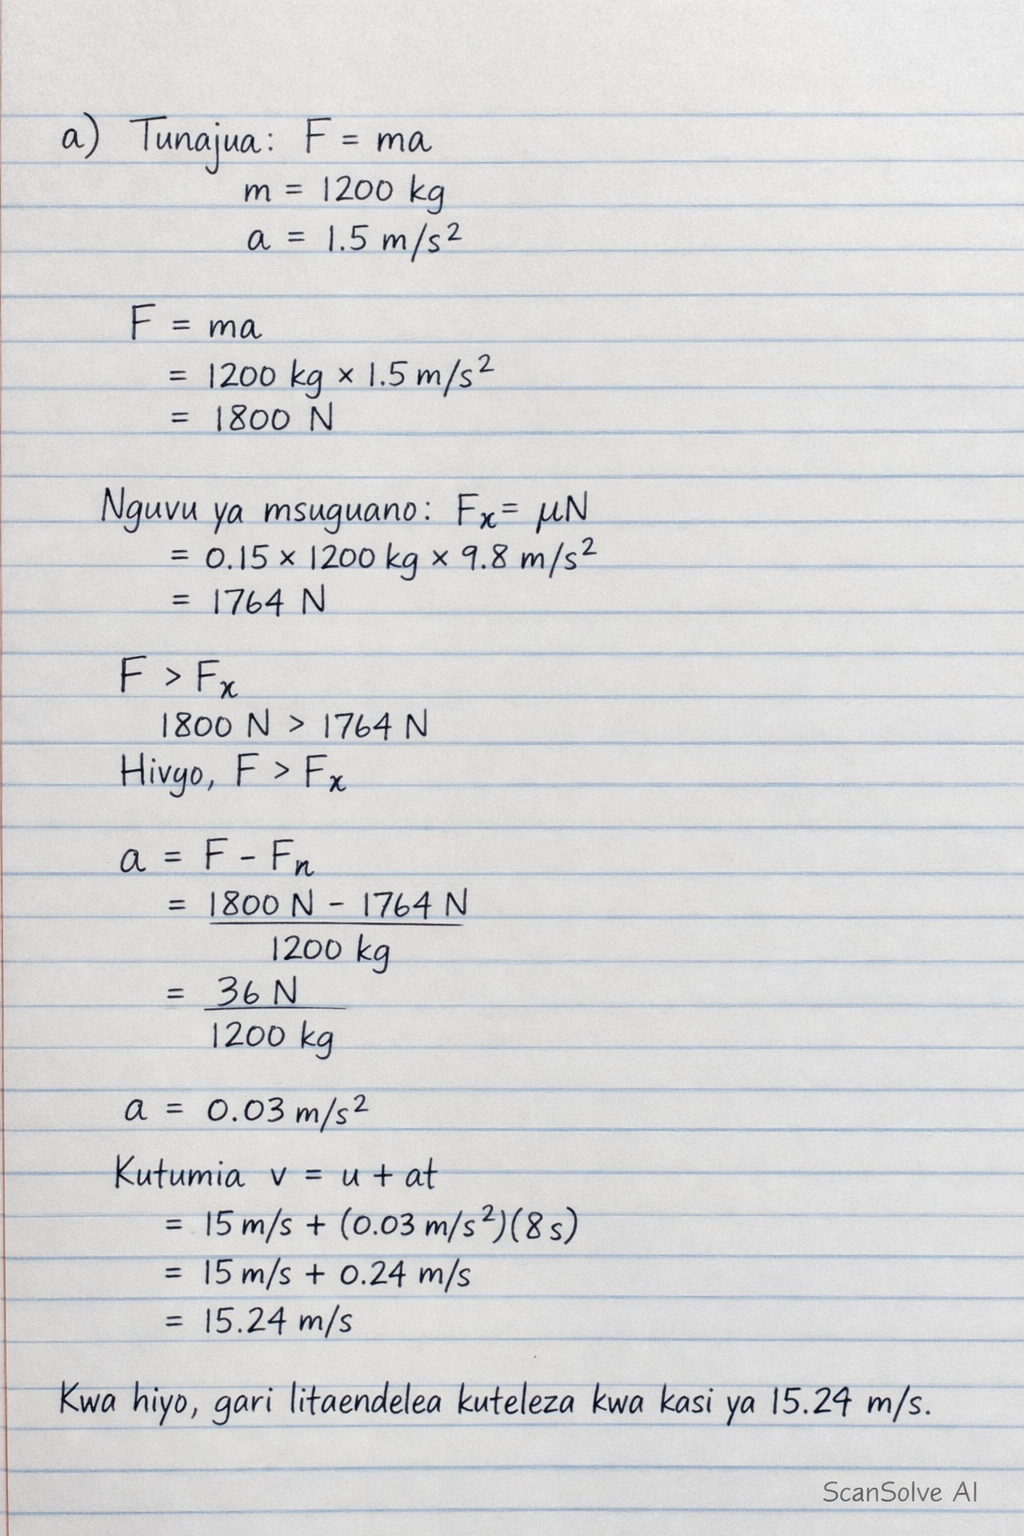 a) Tunajua: F = ma
m = 1200 kg
a = 1.5 m/s²
F = ma
= 1200 kg × 1.5 m/s²
= 1800 N
Nguvu ya msuguano: Fx = μN
= 0.15 × 1200 kg × 9.8 m/s²
= 1764 N
F > Fx
1800 N > 1764 N
Hivyo, F > Fx
a = F - Fn
= 1800 N - 1764 N
1200 kg
= 36 N
1200 kg
a = 0.03 m/s²
Kutumia v = u + at
= 15 m/s + (0.03 m/s²)(8 s)
= 15 m/s + 0.24 m/s
= 15.24 m/s
Kwa hiyo, gari litaendelea kuteleza kwa kasi ya 15.24 m/s.
ScanSolve AI